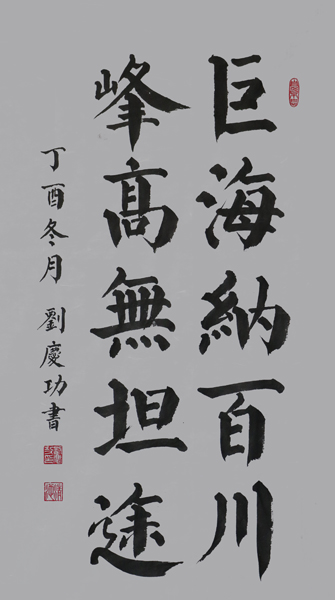 巨海納百川
峰髙無坦途
丁酉冬月 劉慶功書